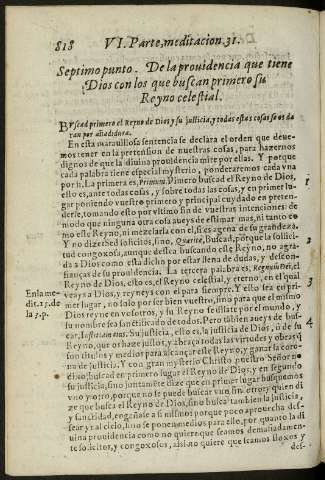 818 VI. Parte, meditacion. 31.
Septimo punto. De la prouidencia que tiene
Dios con los que buscan primero su
Reyno celestial.
Buscad primero el Reyno de Dios y su justicia, y todas estas cosas se os da
ran por añadidura.
En esta marauillosa sentencia se declara el orden que deue-
mos tener en la pretension de nuestras cosas, para hazernos
dignos de que la diuina prouidencia mire por ellas. Y porque
cada palabra tiene especial mysterio, ponderaremos cada vna
por si. La primera es, Primùm, Primero buscad el Reyno de Dios, 1
esto es, ante todas cosas, y sobre todas las cosas, y en primer lu-
gar poniendo vuestro primero y principal cuydado en preten-
derle, tomando esto por vltimo fin de vuestras intenciones: de
modo que ninguna otra cosa aueys de estimar mas, ni tanto co
mo este Reyno, ni mezclarla con el, si es agena de su grandeza.
Y no dize Sed solicitos, sino, Quærite, Buscad, porque la solici- 2
tud congoxosa, aunque sea buscando este Reyno, no agra-
da a Dios como està dicho por estar llena de dudas, y descon-
fianças de su prouidencia. La tercera palabra es, Regnum Dei, el 3
Reyno de Dios, esto es, el Reyno celestial, y eterno, en el qual
En la me- veays a Dios, y reyneys con el para siempre. Este ha de ser el pri
dit. 15. de mer lugar, no solo por ser bien vuestro, sino para que el mismo
la 3. p. Dios reyne en vosotros, y su Reyno se dilate por el mundo, y
su nombre sea sanctificado de todos. Pero tambien aueys de bus-
car, Iustitiam eius, Su justicia, esto es, la justicia de Dios, ò de su 4
Reyno, que os haze justos, y abraça todas las virtudes y obras q̃
son titulos y medios para alcançar este Reyno, y ganar la coro-
na de justicia. Y con gran mysterio Christo nuestro Señor no
dixo, buscad en primer lugar el Reyno de Dios, y en segundo
su justicia, sino juntamẽte dize que en primer lugar busquemos
vno y otro, porque no se puede buscar vno sin otro: y quien di
ze que busca el Reyno de Dios, sino busca tambien la justicia,
y sanctidad, engañase a si mismo: porque poco aprouecha des-
sear y tal cielo, sino se ponen medios para ello, por quanto la di
uina prouidencia como no quiere que seamos demasiadamen-
te solicitos, y congoxosos, assi no quiere que seamos floxos y
des-